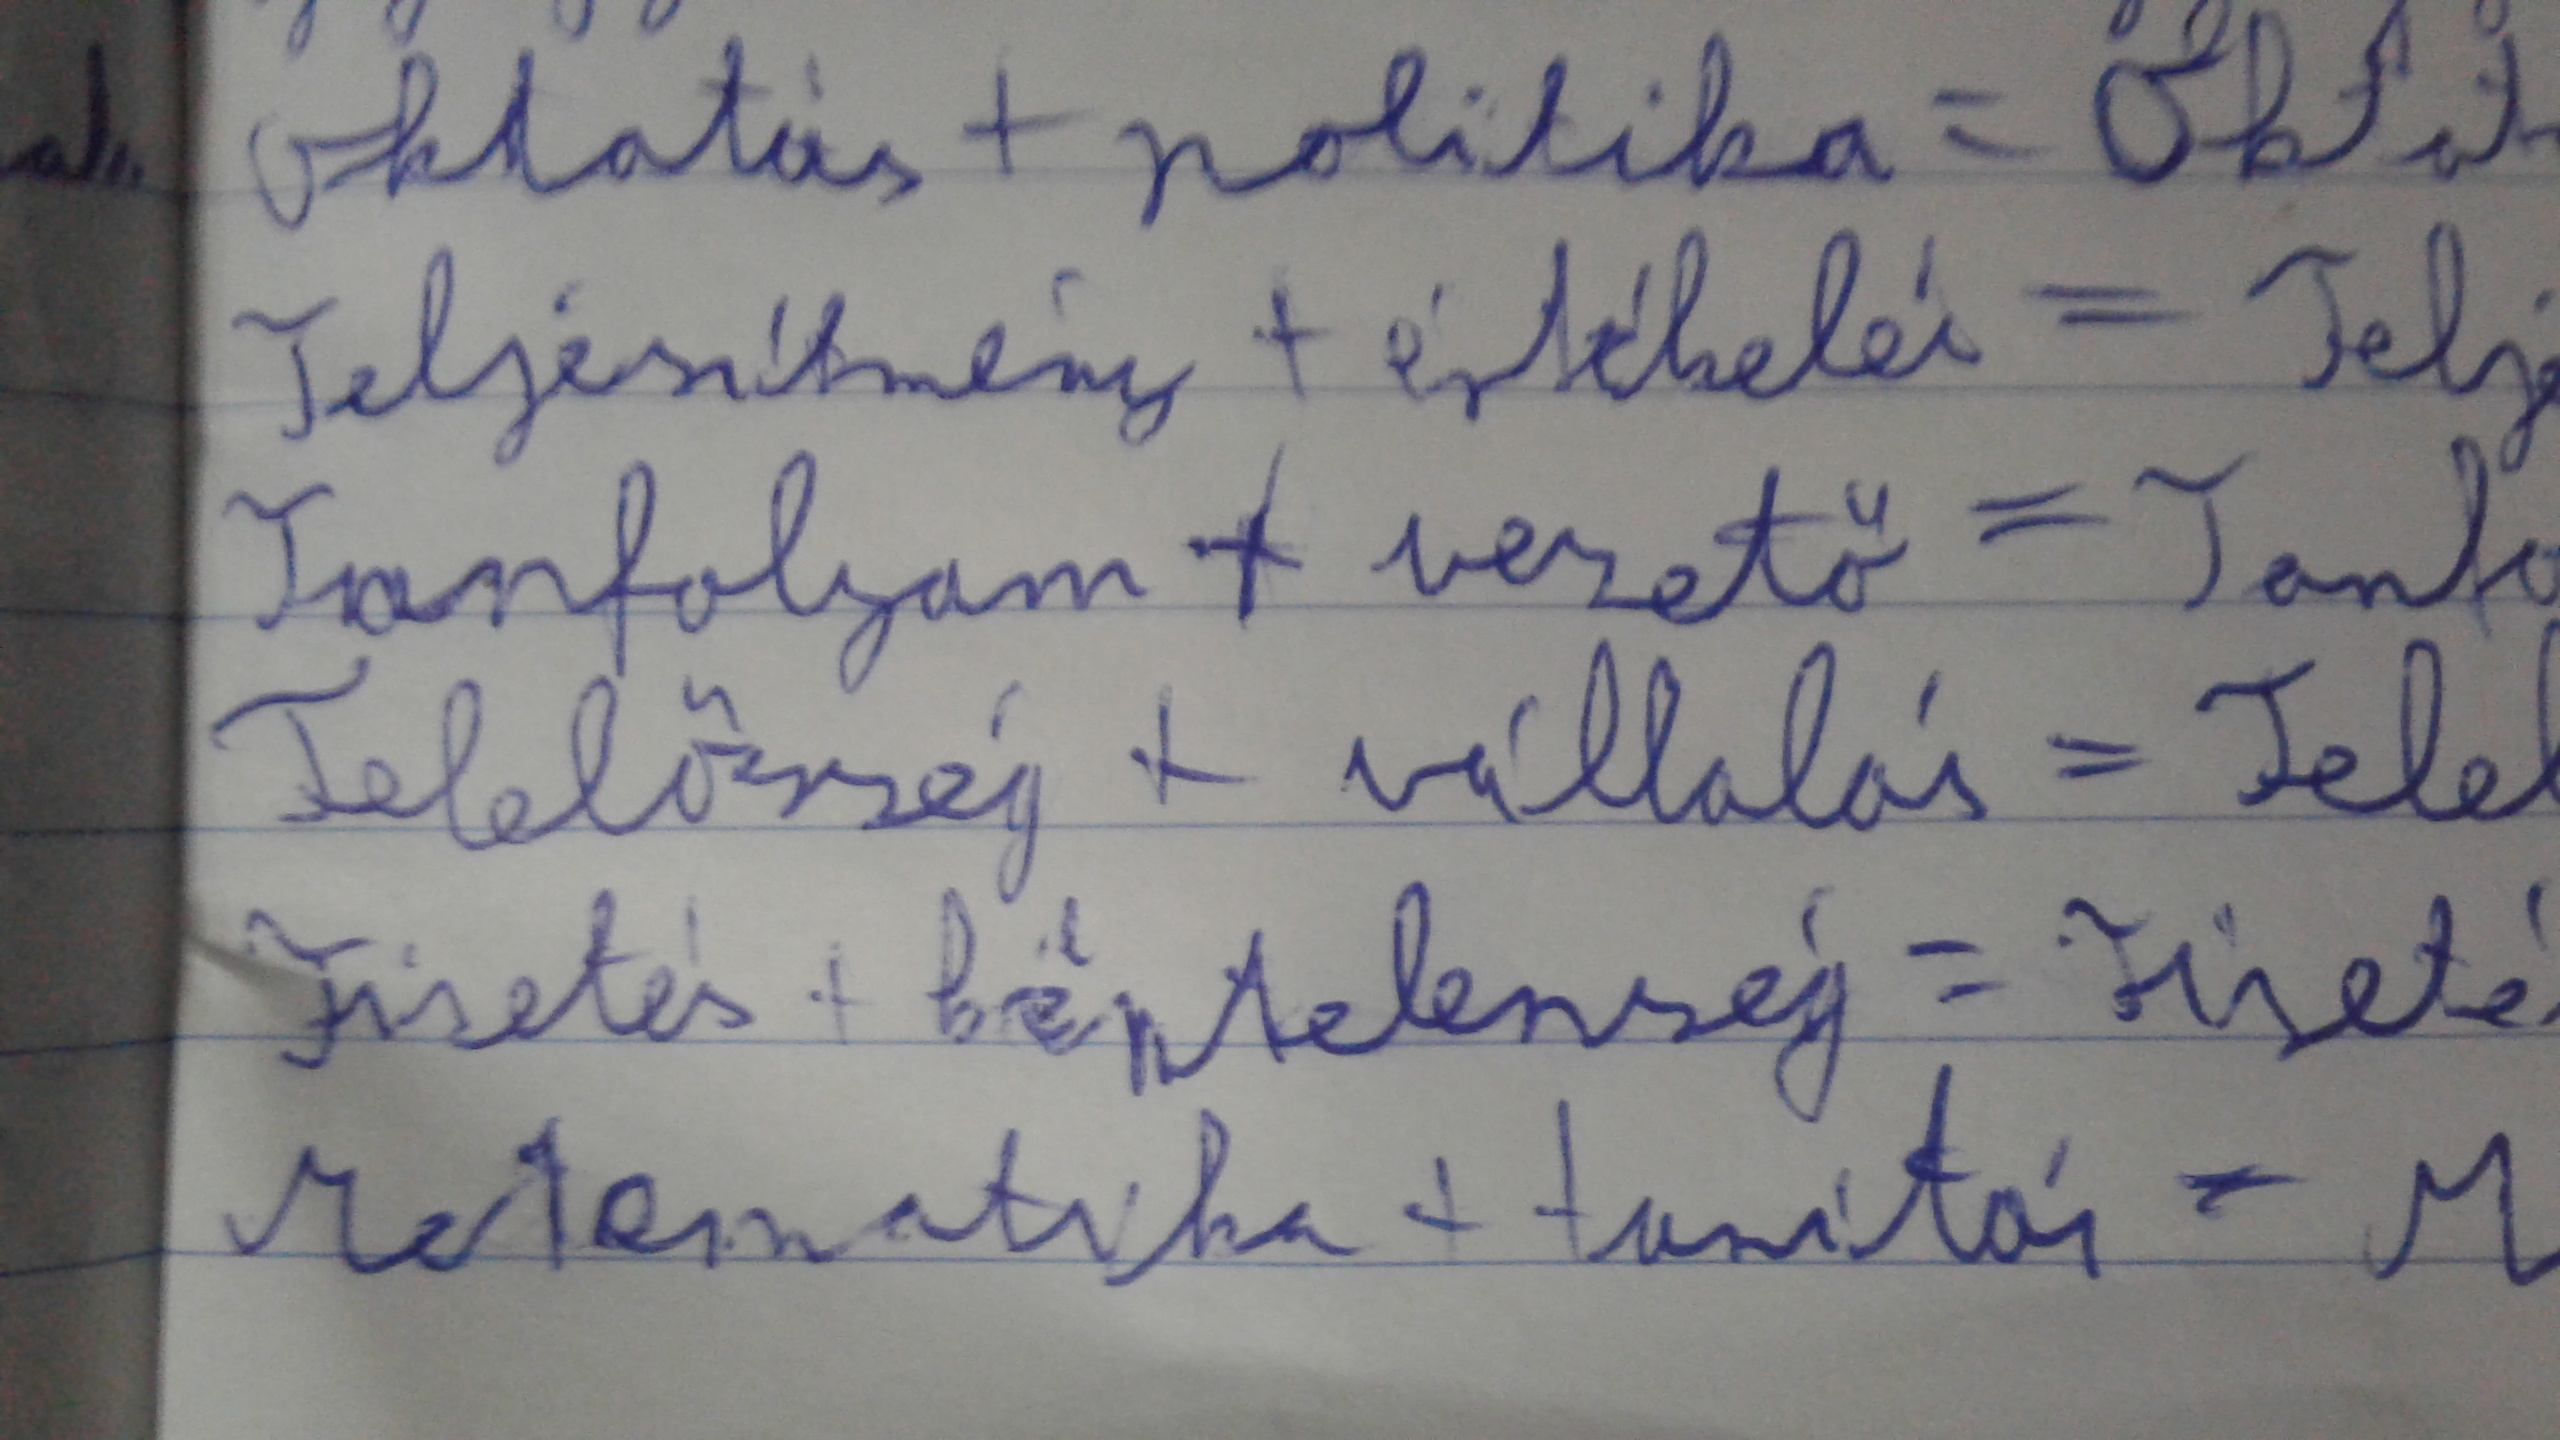 Oktatás + politika = Okta
Teljesítmény + értékelés = Telje
Tanfolyam + vezető = Tanfo
Felelősség + vállalás = Felel
Fizetés + képtelenség = Fizeté
Matematika + tanítás = M